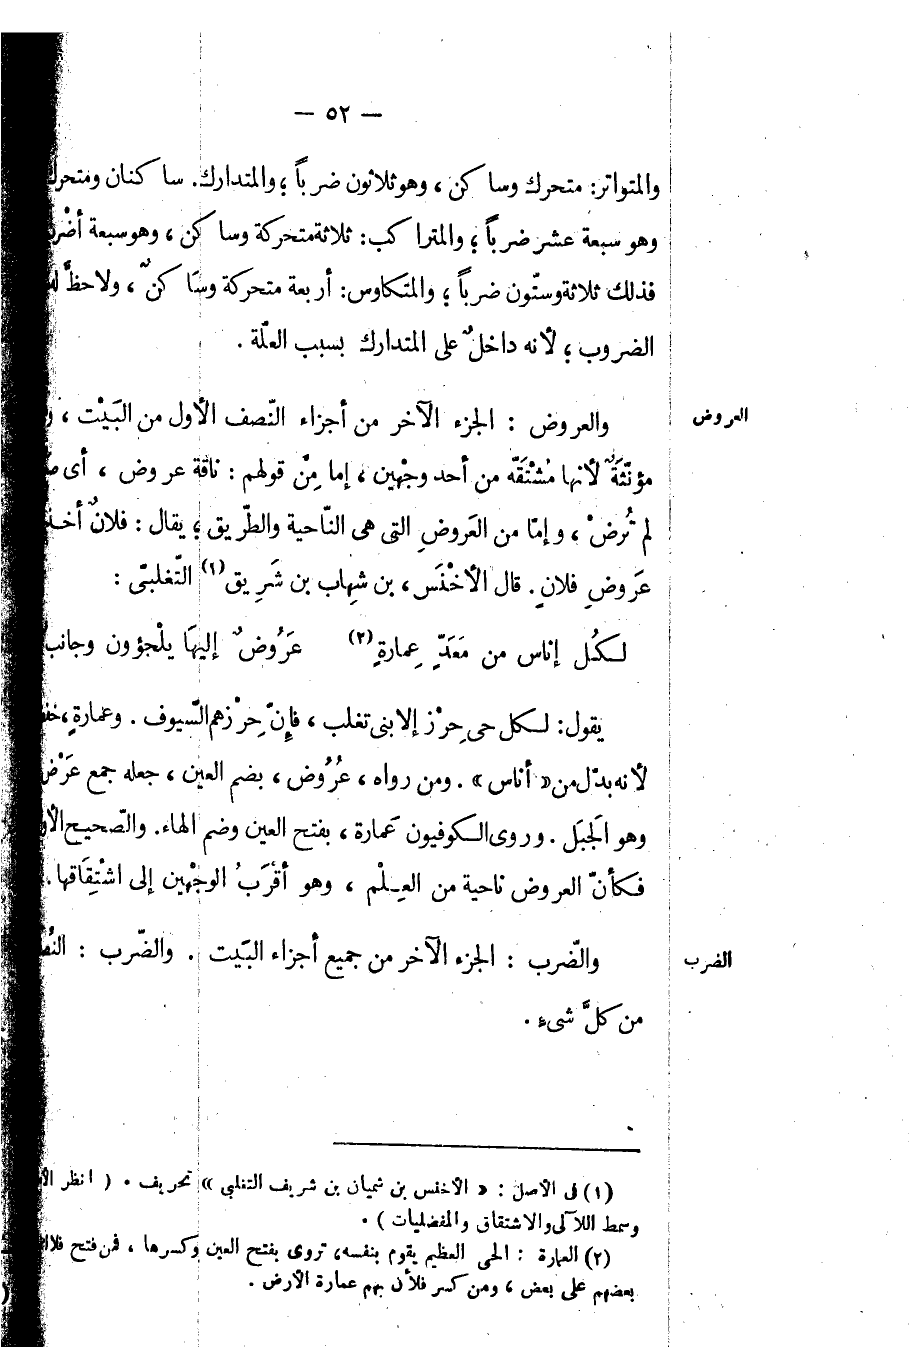 — ٥٢ —
والمتواتر: متحرك وساكن، وهو ثلاثون ضرباً؛ والمتدارك. ساكنان ومتحرك
وهو سبعة عشر ضرباً؛ والمتراكب: ثلاثة متحركة وساكن، وهو سبعة أضْرب
فذلك ثلاثة وستّون ضرباً؛ والمتكاوس: أربعة متحركة وساكنٌ، ولا حظَّ له
الضروب؛ لأنه داخلٌ على المتدارك بسبب العلّة.
العروض
والعروض : الجزء الآخر من أجزاء النّصف الأول من البَيْت،
مؤنّثَةٌ لأنها مُشْتَقَّه من أحد وجْهين، إما مِنْ قولهم : ناقة عروض ، أى
لم تُرضْ، وإمّا من العَروضِ التى هى النّاحية والطّريق؛ يقال : فلانٌ أخذ
عَروضِ فلانٍ. قال الأخْنَس، بن شِهاب بن شَرِيق(١) التّغلبىّ :
لكُل إناس من مَعَدّ عِمارةٍ(٢) عَرُوضٌ إليهَا يلْجؤون وجانب
يقول: لكل حى حِرْز إلا بنى تغلب، فإنّ حِرْزهم السّيوف. وعمارةٍ،
لأنه بدَل من «أناس». ومن رواه، عُرُوض، بضم العين، جعله جمع عَرْض
وهو الَجبَل. وروى الكوفيون عَمارة، بفتح العين وضم الهاء. والصّحيح الأول
فكأنّ العروض ناحية من العِلْم، وهو أقْرَبُ الوجْهين إلى اشْتِقَاقها.
الضرب
والضّرب : الجزء الآخر من جميع أجزاء البَيت. والضّرب :
من كلَّ شىء.
(١) فى الأصل : « الأخنس بن شميان بن شريف التغلبي » تحريف. ( انظر
وسمط اللآلى والاشتقاق والمفضليات ).
(٢) العمارة : الحى العظيم يقوم بنفسه، تروى بفتح العين وكسرها، فمن فتح
بعضهم على بعض، ومن كسر فلأن بهم عمارة الأرض.